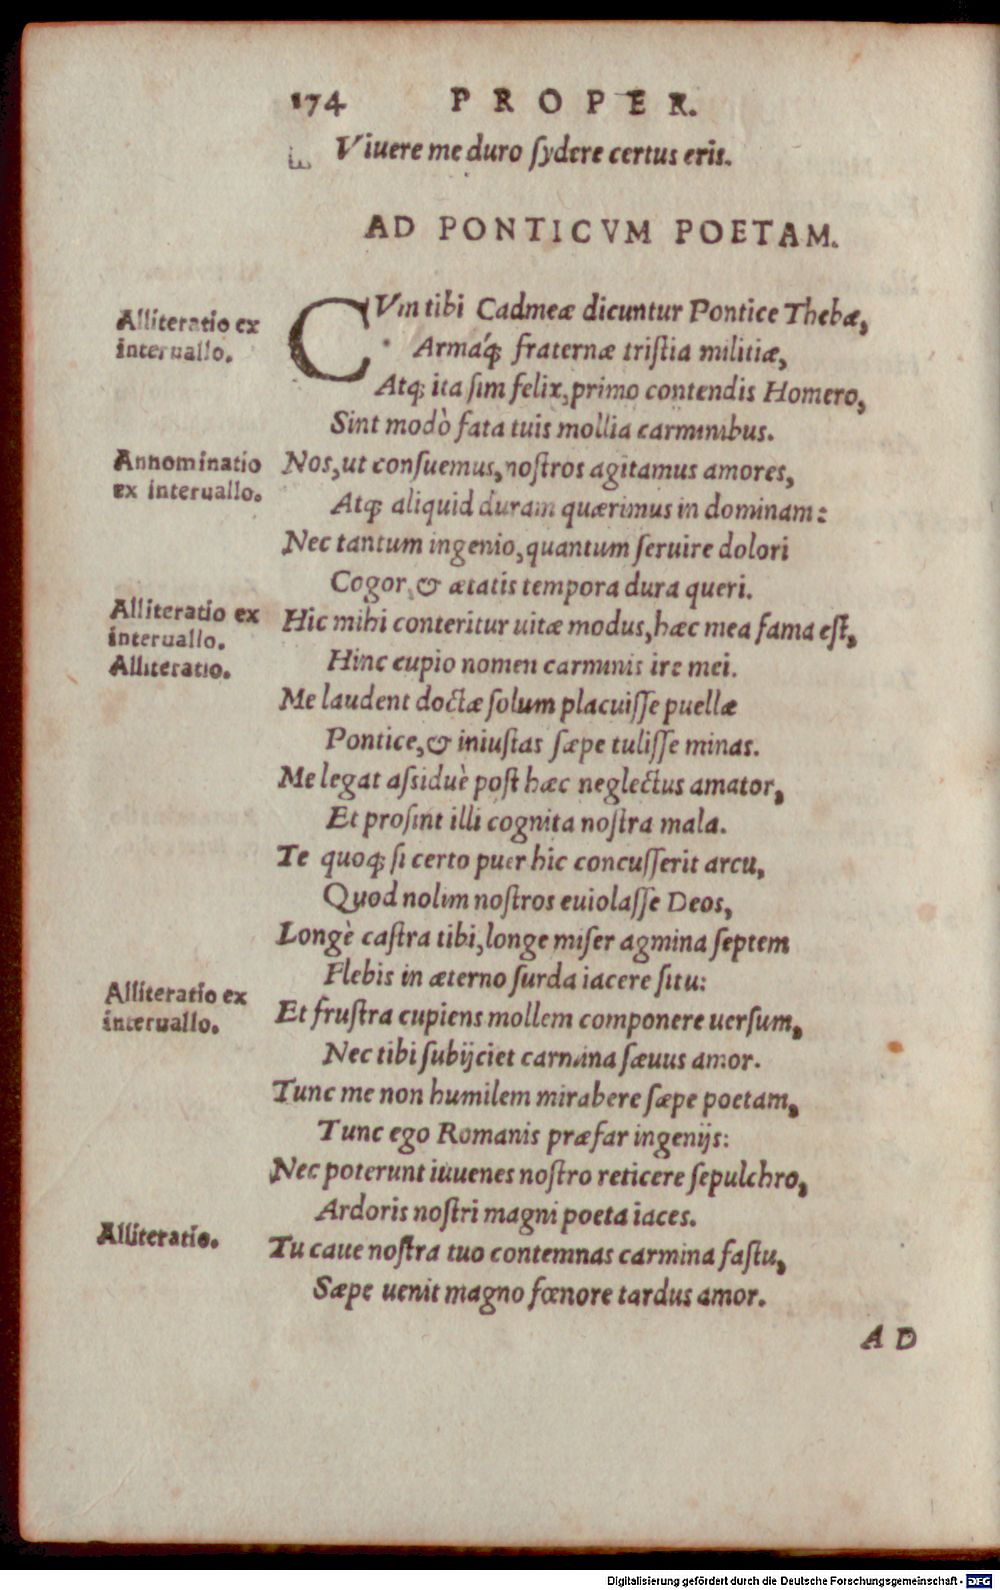 174 PROPER.
Viuere me duro ſydere certus eris.
AD PONTICVM POETAM.
CVm tibi Cadmeæ dicuntur Pontice Thebæ,
Alliteratio ex
interuallo.
Armáq; fraternæ triſtia militiæ,
Atq; ita ſim felix, primo contendis Homero,
Sint modò fata tuis mollia carminibus.
Annominatio
ex interuallo.
Nos, ut conſuemus, noſtros agitamus amores,
Atq; aliquid duram quærimus in dominam:
Nec tantum ingenio, quantum ſeruire dolori
Cogor, & ætatis tempora dura queri.
Alliteratio ex
interuallo.
Alliteratio.
Hic mihi conteritur uitæ modus, hæc mea fama eſt,
Hinc cupio nomen carminis ire mei.
Me laudent doctæ ſolum placuiſſe puellæ
Pontice, & iniuſtas ſæpe tuliſſe minas.
Me legat aſsiduè poſt hæc neglectus amator,
Et proſint illi cognita noſtra mala.
Te quoq; ſi certo puer hic concuſſerit arcu,
Quod nolim noſtros euiolaſſe Deos,
Longè caſtra tibi, longe miſer agmina ſeptem
Flebis in æterno ſurda iacere ſitu:
Alliteratio ex
interuallo.
Et fruſtra cupiens mollem componere uerſum,
Nec tibi ſubijciet carmina ſæuus amor.
Tunc me non humilem mirabere ſæpe poetam,
Tunc ego Romanis præfar ingenijs:
Nec poterunt iuuenes noſtro reticere ſepulchro,
Ardoris noſtri magni poeta iaces.
Alliteratio.
Tu caue noſtra tuo contemnas carmina faſtu,
Sæpe uenit magno fœnore tardus amor.
AD
Digitalisierung gefördert durch die Deutsche Forschungsgemeinschaft - DFG